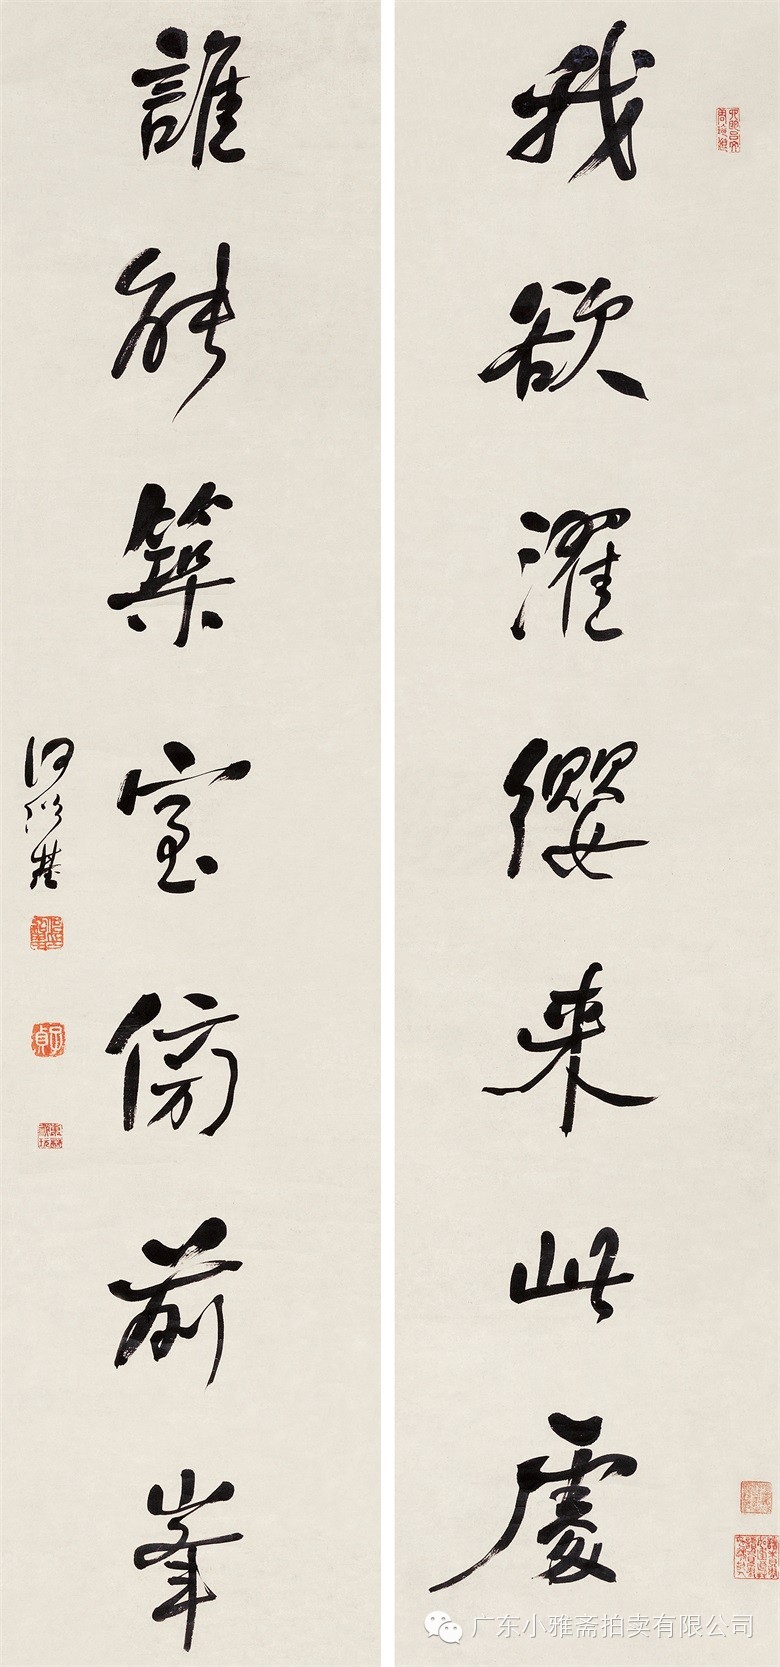 我欲濯纓來此處
誰能築室傍前峯
何紹基
广东小雅斋拍卖有限公司